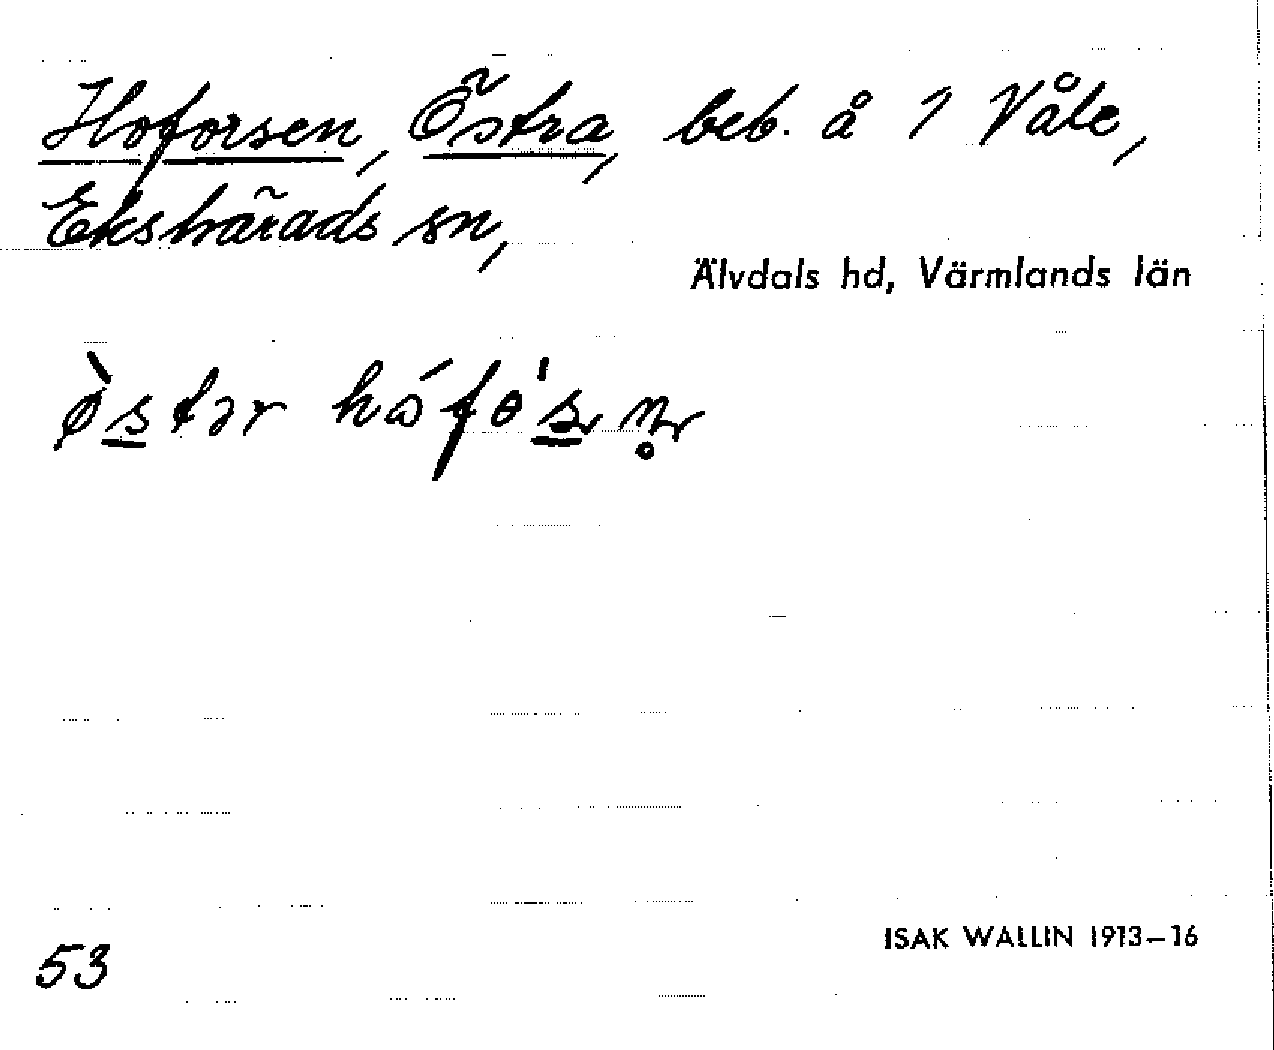 Hoforsen, Östra, beb. å 1 Våle,
Ekshärads sn,
Älvdals hd, Värmlands län
ISAK WALLIN 1913–16
53